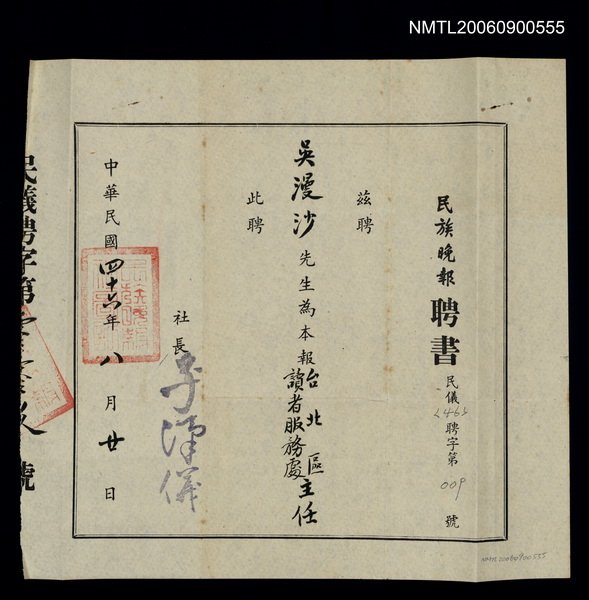 NMTL20060900555
民族晚報聘書
民儀(46)聘字第009號
茲聘
吳漫沙先生為本報台北區讀者服務處主任
此聘
社長
中華民國四十六年八月廿日
民儀聘字第
號
NMTL20060900555